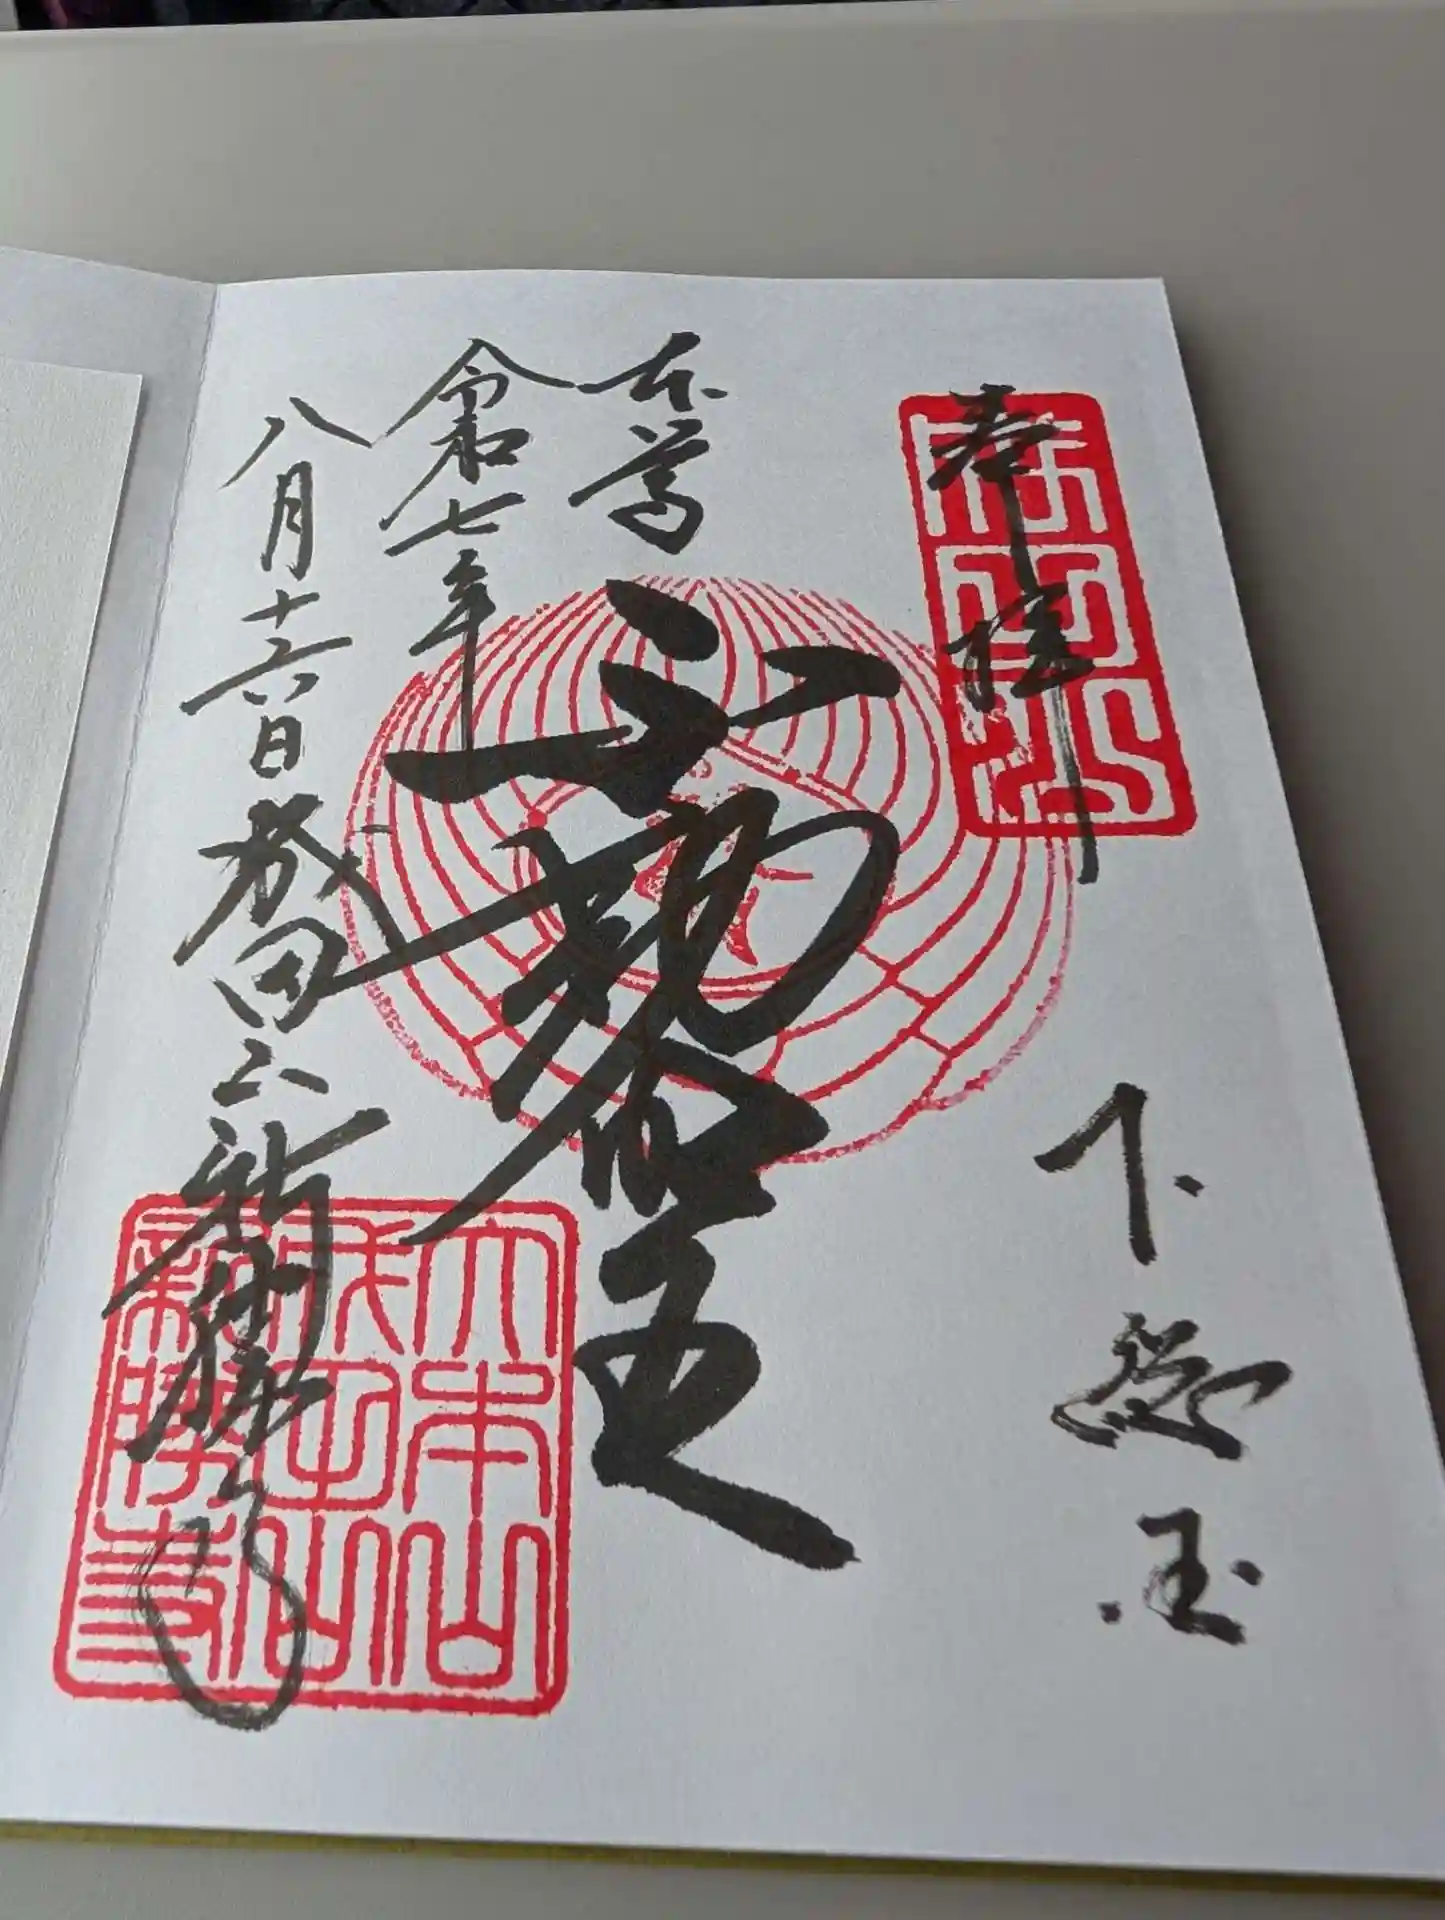 奉拝
下総国
本尊
不動明王
令和七年
八月十六日
成田山新勝寺
大本山
成田山
新勝寺